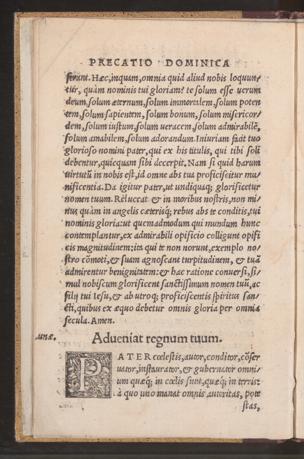 PRECATIO DOMINICA
ferunt. Hæc, inquam, omnia quid aliud nobis loquun-
tur, quàm nominis tui gloriam? te solum esse verum
deum, solum æternum, solum immortalem, solum poten
tem, solum sapientem, solum bonum, solum misericor-
dem, solum iustum, solum veracem, solum admirabilē,
solum amabilem, solum adorandum. Iniuriam facit tuo
glorioso nomini pater, qui ex his titulis, qui tibi soli
debentur, quicquam sibi decerpit. Nam si quid harum
virtutū in nobis est, id omne abs tua proficiscitur mu-
nificentia. Da igitur pater, ut undiquaq; glorificetur
nomen tuum. Reluceat & in moribus nostris, non mi-
nus quàm in angelis cæterisq; rebus abs te conditis, tui
nominis gloria: ut quemadmodum qui mundum hunc
contemplantur, ex admirabili opificio colligunt opifi
cis magnitudinem: ita qui te non norunt, exemplo no-
stro cōmoti, & suam agnoscant turpitudinem, & tuā
admirentur benignitatem: & hac ratione conversi, si-
mul nobiscum glorificent sanctissimum nomen tuū, ac
filij tui Iesu, & ab utroq; proficiscentis spiritus san-
cti, quibus ex æquo debetur omnis gloria per omnia
secula. Amen.
Adueniat regnum tuum.
PATER cœlestis, autor, conditor, cōser
uator, instaurator, & gubernator omni-
um quæq; in cœlis sunt, quæq; in terris:
à quo uno manat omnis autoritas, pote
stas,